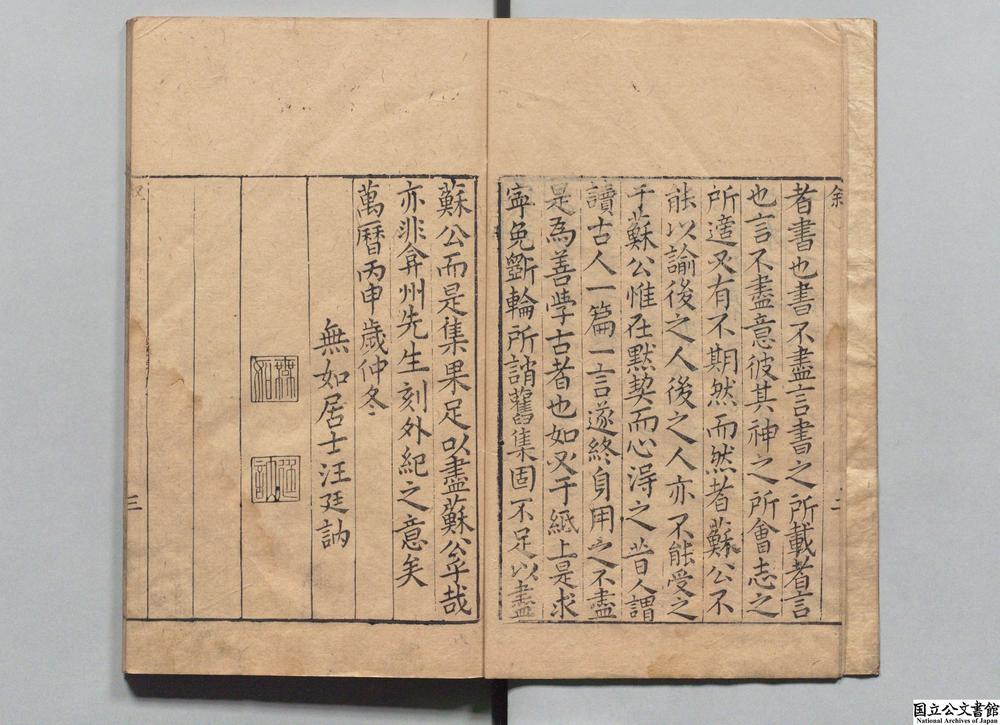 者書也書不盡言書之所載者言
也言不盡意彼其神之所會志之
所適又有不期然而然者蘇公不
能以諭後之人後之人亦不能受之
于蘇公惟在默契而心得之昔人謂
讀古人一篇一言遂終身用之不盡
是為善學古者也如又于紙上是求
寧免斵輪所誚舊集固不足以盡
二
蘇公而是集果足以盡蘇公乎哉
亦非弇州先生刻外紀之意矣
萬曆丙申歲仲冬
無如居士汪廷訥
無如
廷訥
三
国立公文書館
National Archives of Japan